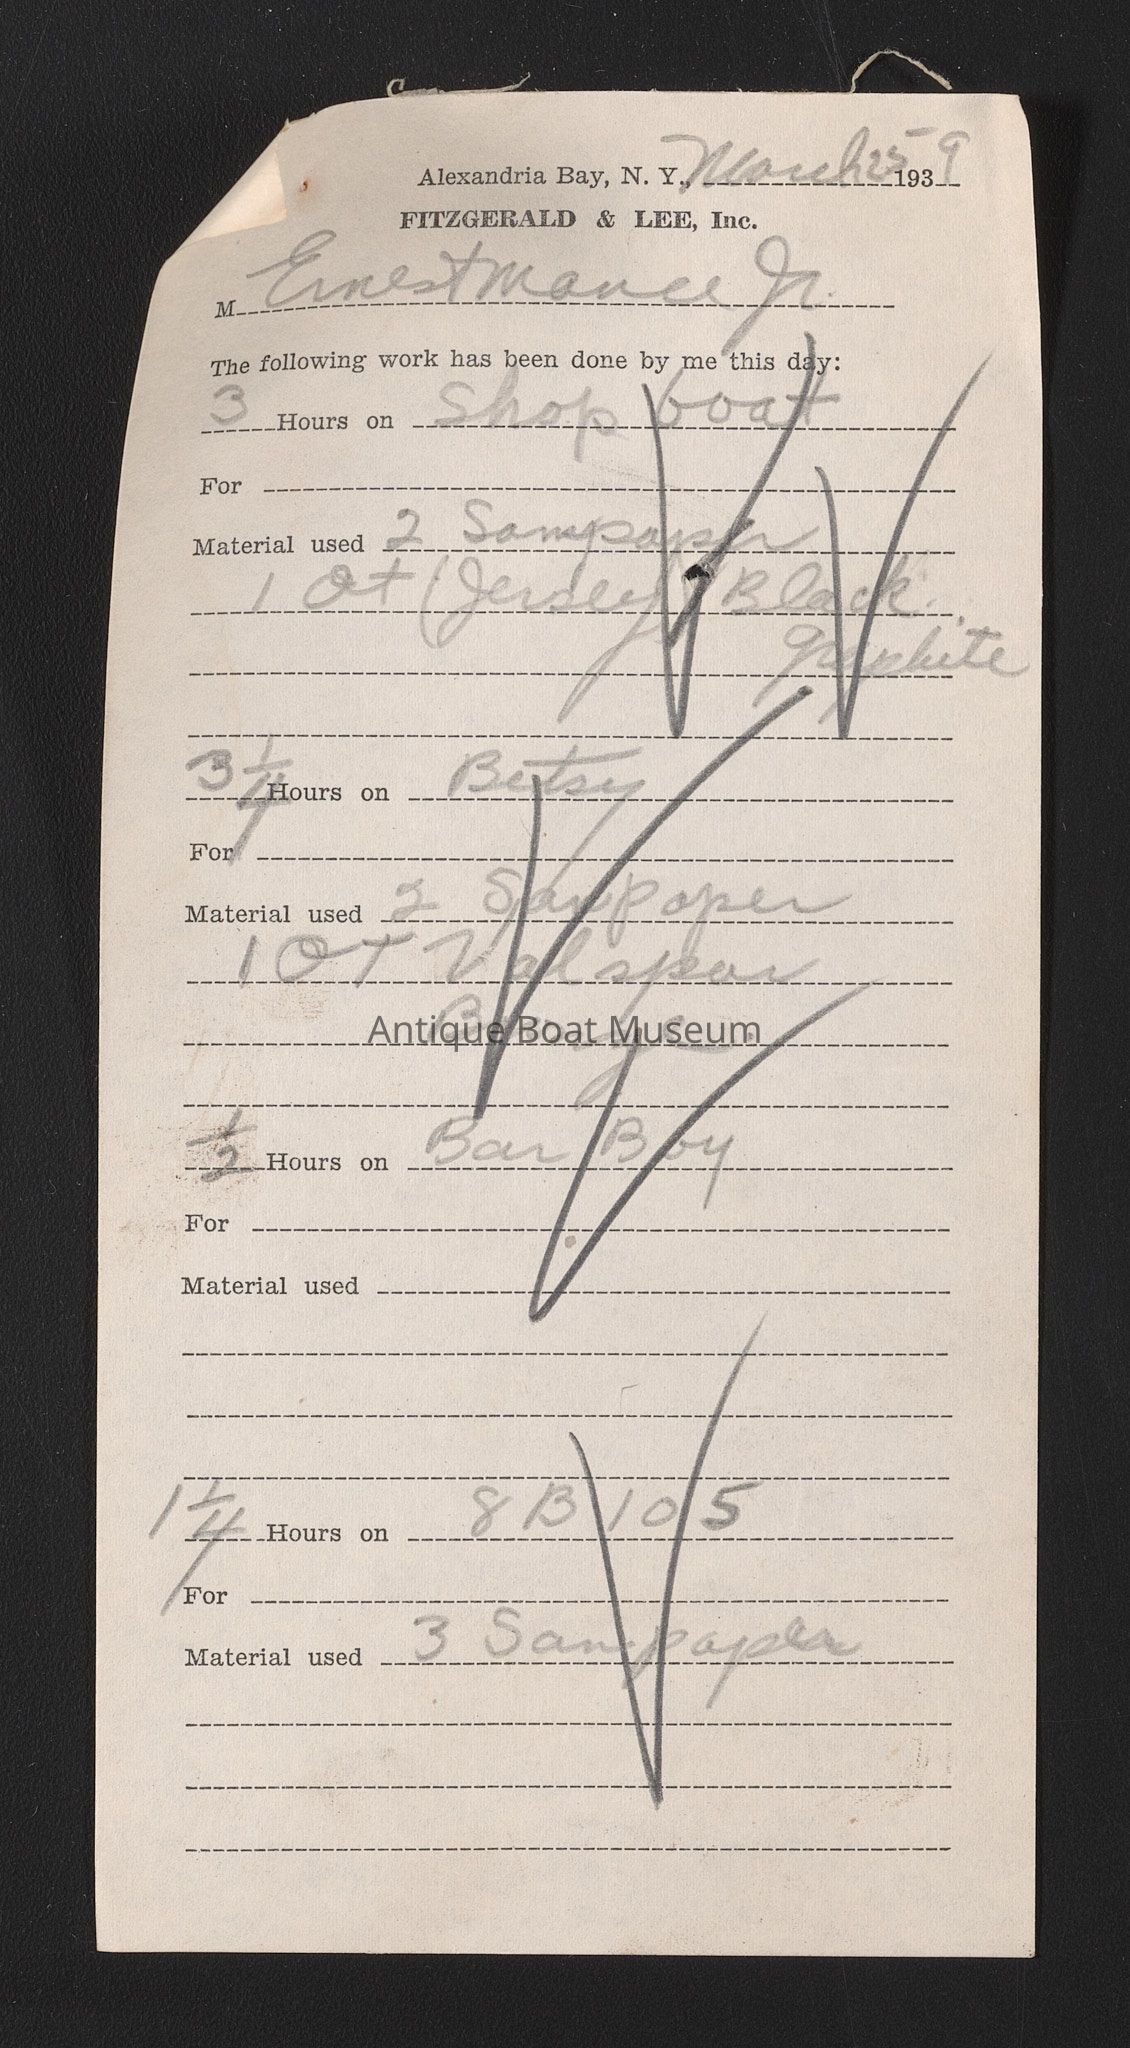 Alexandria Bay, N. Y., March 25 1939
FITZGERALD & LEE, Inc.
M Ernest Mance Jr.
The following work has been done by me this day:
3 Hours on Shop boat
For
Material used 2 Sampaper
1 Qt (Jersey) Black
Graphite
3 1/4 Hours on Betsy
For
Material used 2 Sanpaper
1 QT Valspar
Antique Boat Museum
1/2 Hours on Bar Boy
For
Material used
1 1/4 Hours on 8 B 105
For
Material used 3 Sampaper